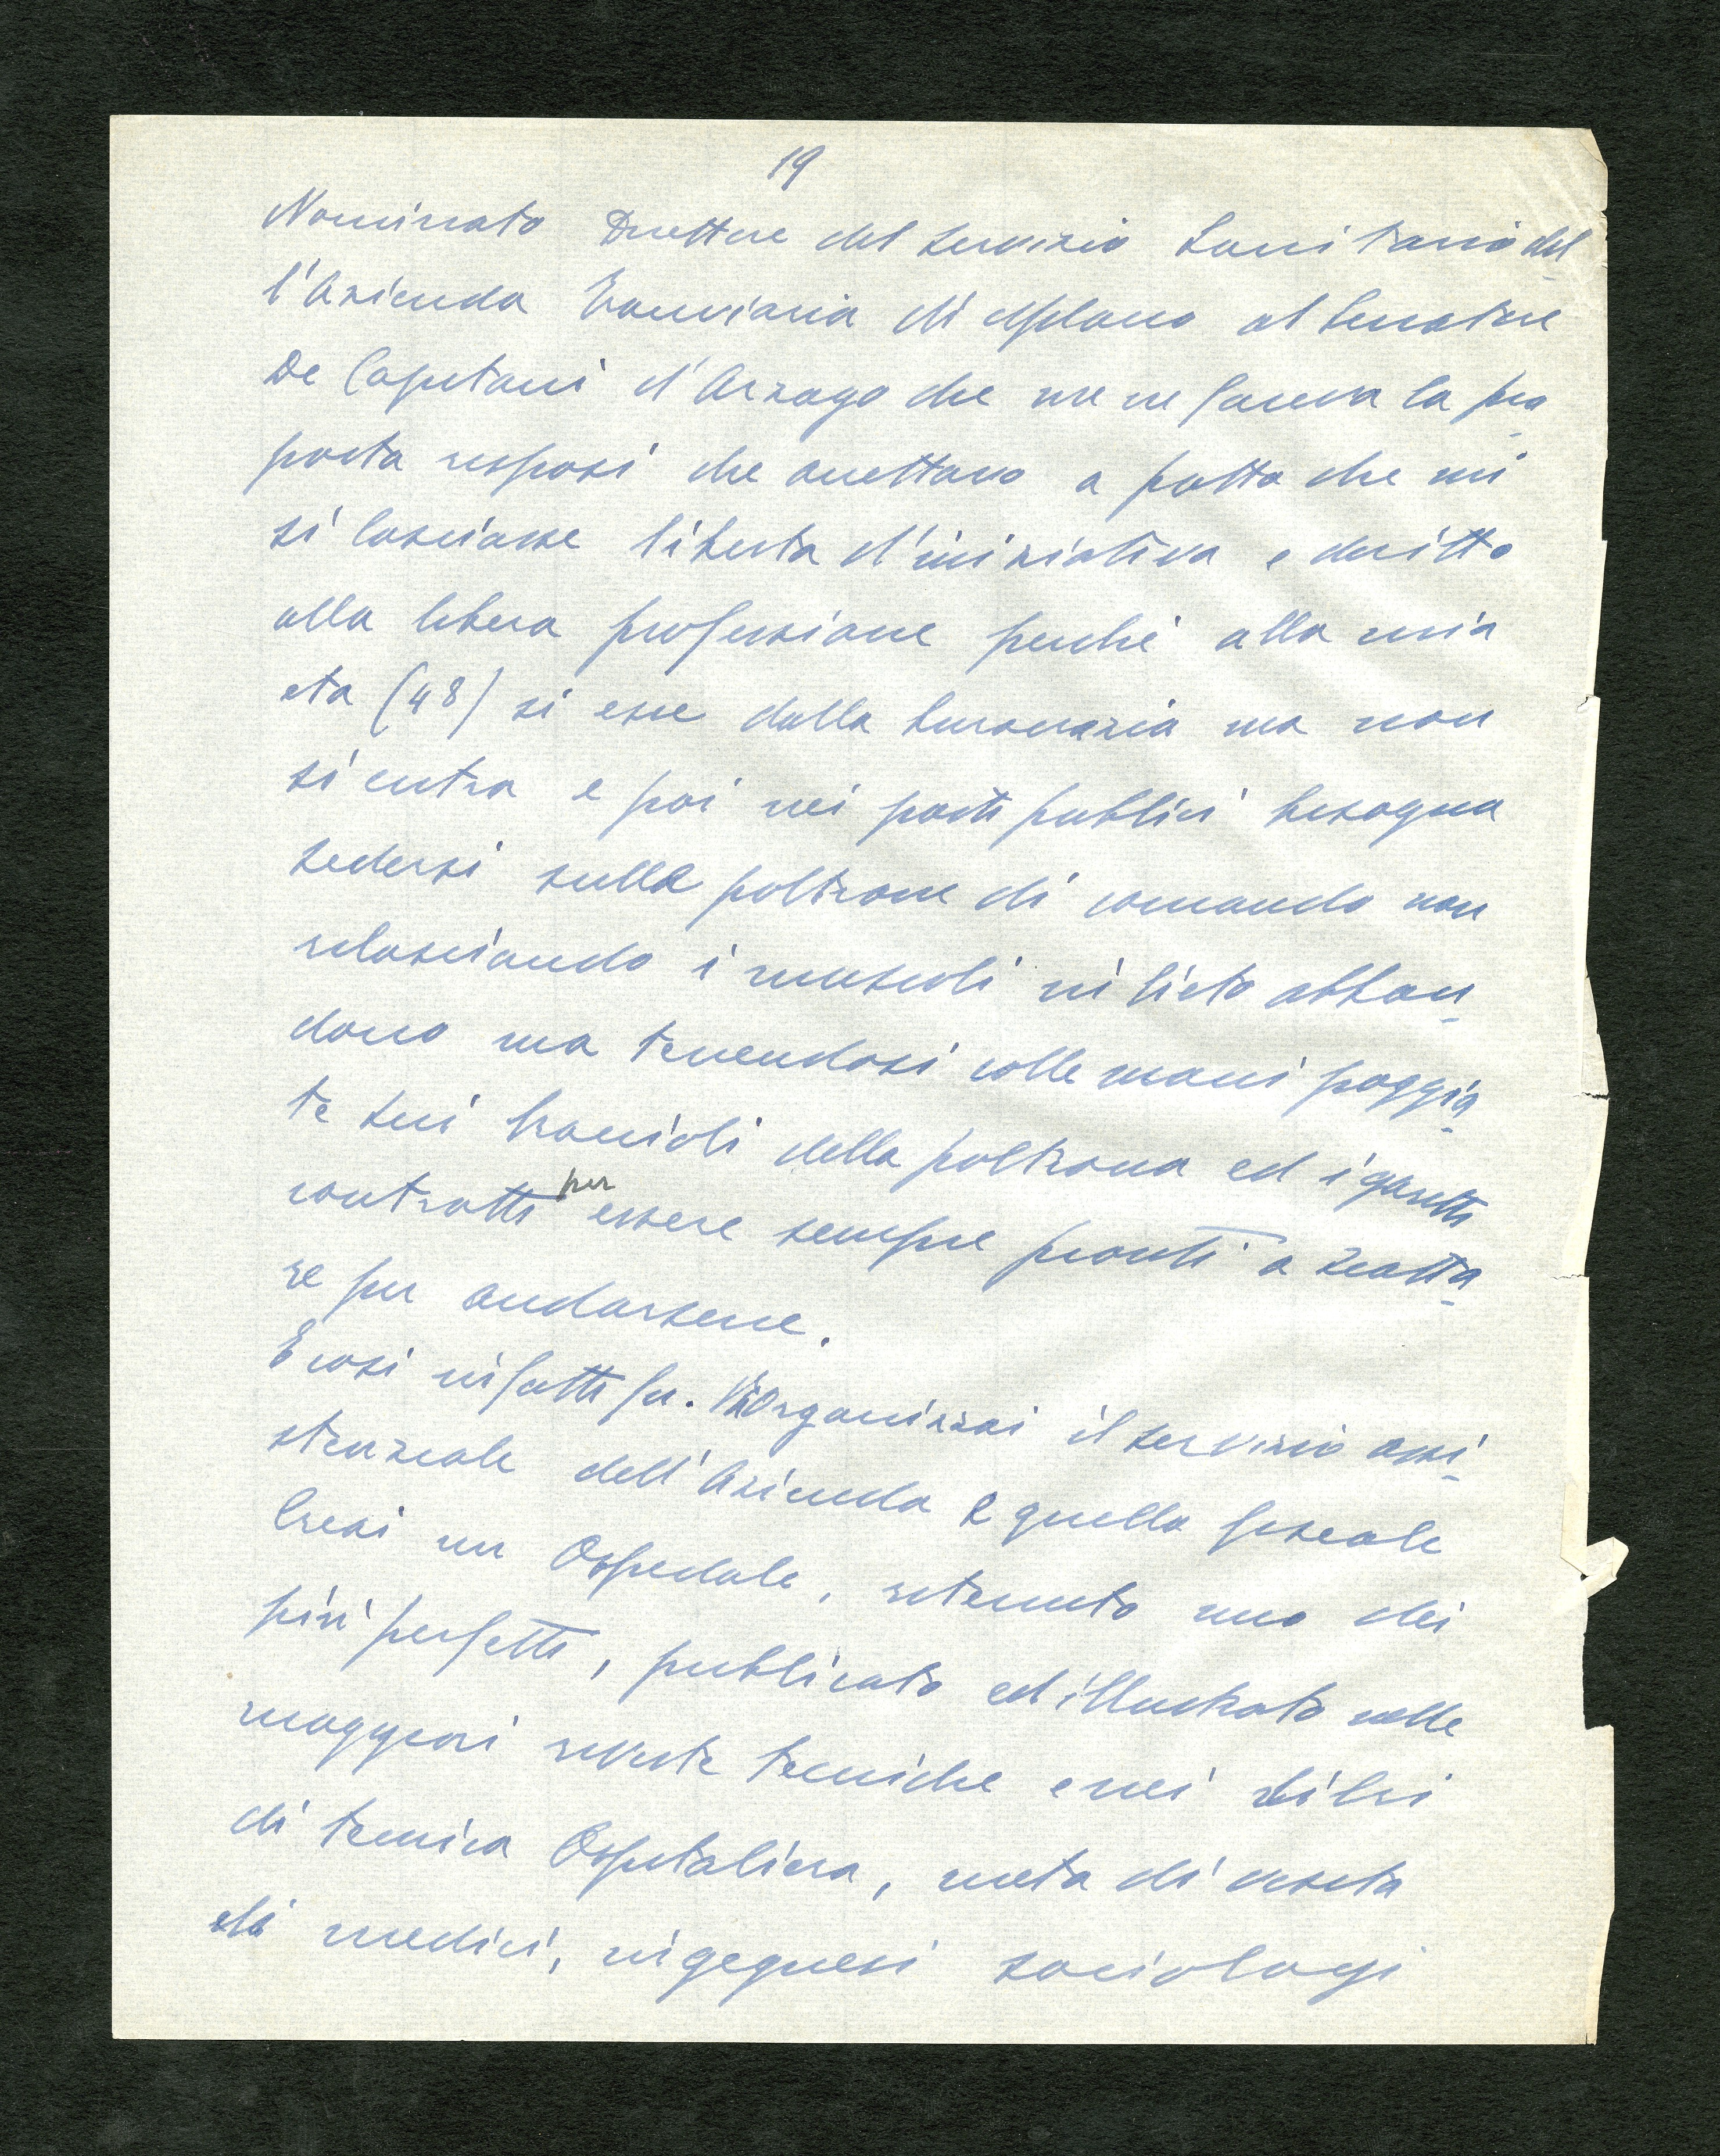 19
Nominato Direttore del servizio Sanitario del-
l'Azienda Tranviaria di Milano al Senatore
De Capitani d'Arzago che me ne faceva la pro-
posta risposi che accettavo a patto che mi
si lasciasse liberta d'iniziativa e diritto
alla libera professione perchè alla mia
eta (48) si esce dalla burocrazia ma non
si entra e poi nei posti pubblici bisogna
sedersi sulle poltrone di comando non
rilasciando i muscoli in lieto abban-
dono ma tenendosi colle mani poggia-
te sui braccioli della poltrona ed i garetti
contratti per essere sempre pronti a scatta-
re per andarsene.
E così infatti fu. Riorganizzai il servizio assi-
stenziale dell'Azienda e quello fiscale
Creai un Ospedale, ritenuto uno dei
più perfetti, publicato ed illustrato nelle
maggiori riviste tecniche e nei libri
di tecnica Ospitaliera, meta di visita
di medici, ingegneri sociologi